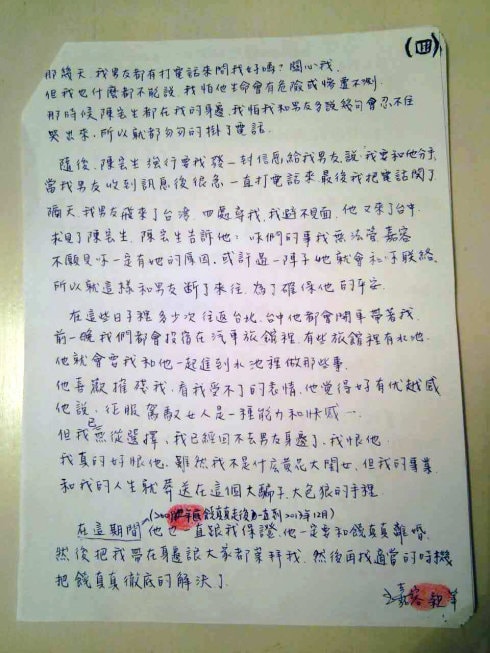 (四)
那幾天,我男友都有打電話來問我好嗎?關心我.
但我也什麼都不能說,我怕他生命會有危險或慘遭不測
那時候陳宏生都在我的身邊,我怕我和男友多說幾句會忍不住
哭出來,所以就都匆匆的掛了電話.
隨後,陳宏生強行要我發一封信息給我男友說:我要和他分手.
當我男友收到訊息後很急一直打電話來最後我把電話関了
隔天,我男友飛來了台灣 四處尋我,我避不見面,他又來了台中
求見了陳宏生,陳宏生告訴他:你們的事我無法管,嘉容
不願見你一定有她的原因,或許過一陣子她就會和你聯絡.
所以就這樣和男友斷了來往.為了確保他的平安
在這些日子裡多少次往返台北.台中他都會開車帶著我.
前一晚我們都會投宿在汽車旅館裡.有些旅館裡有水池.
他就會要我和他一起進到水池裡做那些事.
他喜歡摧殘我.看我受不了的表情,他覺得好有优越感
他說:征服駕馭女人是一種能力和快感.
但我已無從選擇,我已經回不去男友身邊了,我恨他.
我真的好恨他,雖然我不是什麼黃花大閨女,但我的事業
和我的人生就葬送在這個大騙子.大色狼的手裡.
年底饒真真走後 一直到2013年12月)
在這期間他也一直跟我保證.他一定要和饒真真離婚.
然後把我帶在身邊讓大家都崇拜我.然後再找適當的時機
把饒真真徹底的解決了.
嘉容 親筆